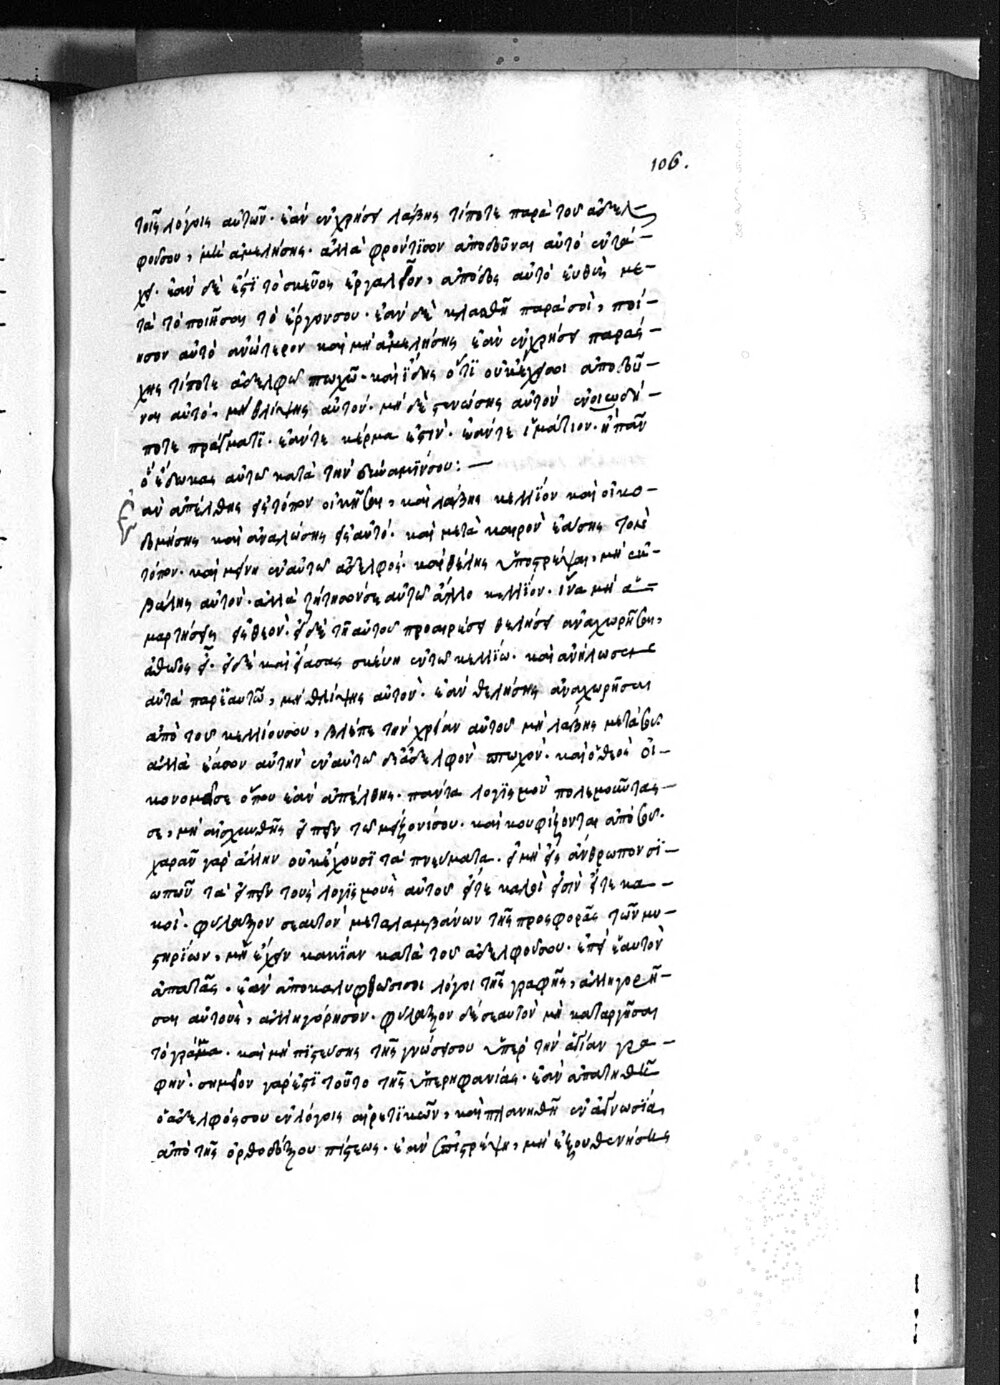 106.
τοῖς λόγοις αὐτῶν. ἐὰν ἐν χρήσει λάβης τίποτε παρὰ τοῦ ἀδελ-
φοῦ σου, μὴ ἀμελήσης. ἀλλὰ φρόντισον ἀποδοῦναι αὐτὸ ἐν τά-
χει. ἐὰν δέ ἐστι τὸ σκεῦος ἐργαλεῖον, ἀπόδος αὐτὸ εὐθὺς με-
τὰ τὸ ποιῆσαι τὸ ἔργον σου. ἐὰν δὲ κλασθῆ παρὰ σοὶ, ποί-
ησον αὐτὸ ἀνώτερον καὶ μὴ ἀμελήσης ἐὰν ἐν χρήσει παράσ-
χης τίποτε ἀδελφῶ πτωχῶ. καὶ ἴδης ὅτι οὐκ ἔχει σοι ἀποδοῦ-
ναι αὐτὸ. μὴ θλίψης αὐτόν. μὴ δὲ στενώσης αὐτὸν ἐν οἱωδή-
ποτε πράγματι. ἐάν τε κέρμα ἐστὶν. ἐάν τε ἱμάτιον. ἢ πᾶν
ὃ ἔδωκας αὐτῶ κατὰ τὴν δύναμίν σου: —
Ἐὰν ἀπέλθης εἰς τόπον οἰκῆσαι, καὶ λάβης κελλίον καὶ οἰκο-
δομήσης καὶ ἀναλώσης εἰς αὐτό. καὶ μετὰ καιρὸν ἐάσης τὸν
τόπον. καὶ μένη ἐν αὐτῶ ἀδελφός. καὶ θέλης ὑποστρέψαι, μὴ ἐκ-
βάλης αὐτόν. ἀλλὰ ζήτησόν σε αὐτῶ ἄλλο κελλίον. ἵνα μὴ ἁ-
μαρτήσης εἰς θεὸν. εἰ δὲ τῆ αὐτοῦ προαιρέσει θελήσει ἀναχωρῆσαι,
ἀθῶος εἶ. εἰ δὲ καὶ εἴασας σκεύη ἐν τῶ κελλίω. καὶ ἀνήλωσεν
αὐτὰ παρ' ἑαυτῶ, μὴ θλίψης αὐτόν. ἐὰν θελήσης ἀναχωρῆσαι
ἀπὸ τοῦ κελλίου σου, βλέπε τὸν χρείαν αὐτοῦ μὴ λάβης μετὰ σοῦ
ἀλλὰ ἔασον αὐτὴν ἐν αὐτῶ δι' ἀδελφὸν πτωχόν. καὶ ὁ θεὸς οἰ-
κονομεῖ σε ὅπου ἐὰν ἀπέλθης. πάντα λογισμὸν πολεμοῦντάς
σε, μὴ αἰσχυνθῆς εἰπεῖν τῶ μείζονί σου. καὶ κουφίζονται ἀπὸ σοῦ.
χαρὰν γὰρ ἄλλην οὐκ ἔχουσι τὰ πνεύματα. εἰ μὴ εἰς ἄνθρωπον σι-
ωπῶν τὰ εἰπεῖν τοὺς λογισμοὺς αὐτοῦ εἴτε καλοὶ εἰσὶν εἴτε κα-
κοί. φύλαξον σεαυτὸν μεταλαμβάνων τῆς προσφορᾶς τῶν μυ-
στηρίων, μὴ ἔχειν κακίαν κατὰ τοῦ ἀδελφοῦ σου. ἐπεὶ ἑαυτὸν
ἀπατᾶς. ἐὰν ἀποκαλυφθῶσί σοι λόγοι τῆς γραφῆς, ἀλληγορῆ-
σαι αὐτοὺς, ἀλληγόρησον. φύλαξον δὲ σεαυτὸν μὴ καταργῆσαι
τὸ γράμμα. καὶ μὴ πιστεύσης τῆς γνώσει σου ὑπὲρ τὴν ἁγίαν γρα-
φήν. σημεῖον γάρ ἐστι τοῦτο τῆς ὑπερηφανίας. ἐὰν ἀπατηθῆ
ὁ ἀδελφός σου ἐν λόγοις αἱρετικῶν, καὶ πλανηθῆ ἐν ἀγνωσία
ἀπὸ τῆς ὀρθοδόξου πίστεως. ἐὰν ἐπιστρέψη, μὴ ἐξουθενήσης